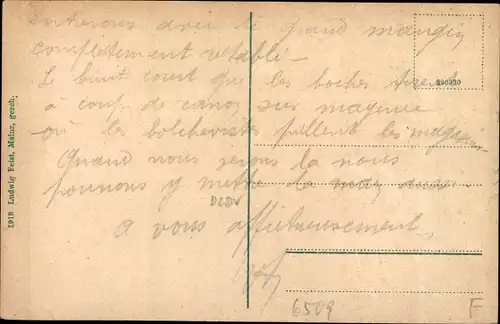 entrerons avec le grand manger
complètement rétabli —
Le bruit court que les boches tirent
à coup de canon sur mayence
où les bolchevistes pillent les magasins.
Quand nous serons là nous
pourrons y mettre la main aussi.
DLDV
A vous affectueusement,
6509
F
520330
1918 Ludwig Feist, Mainz, gesch.